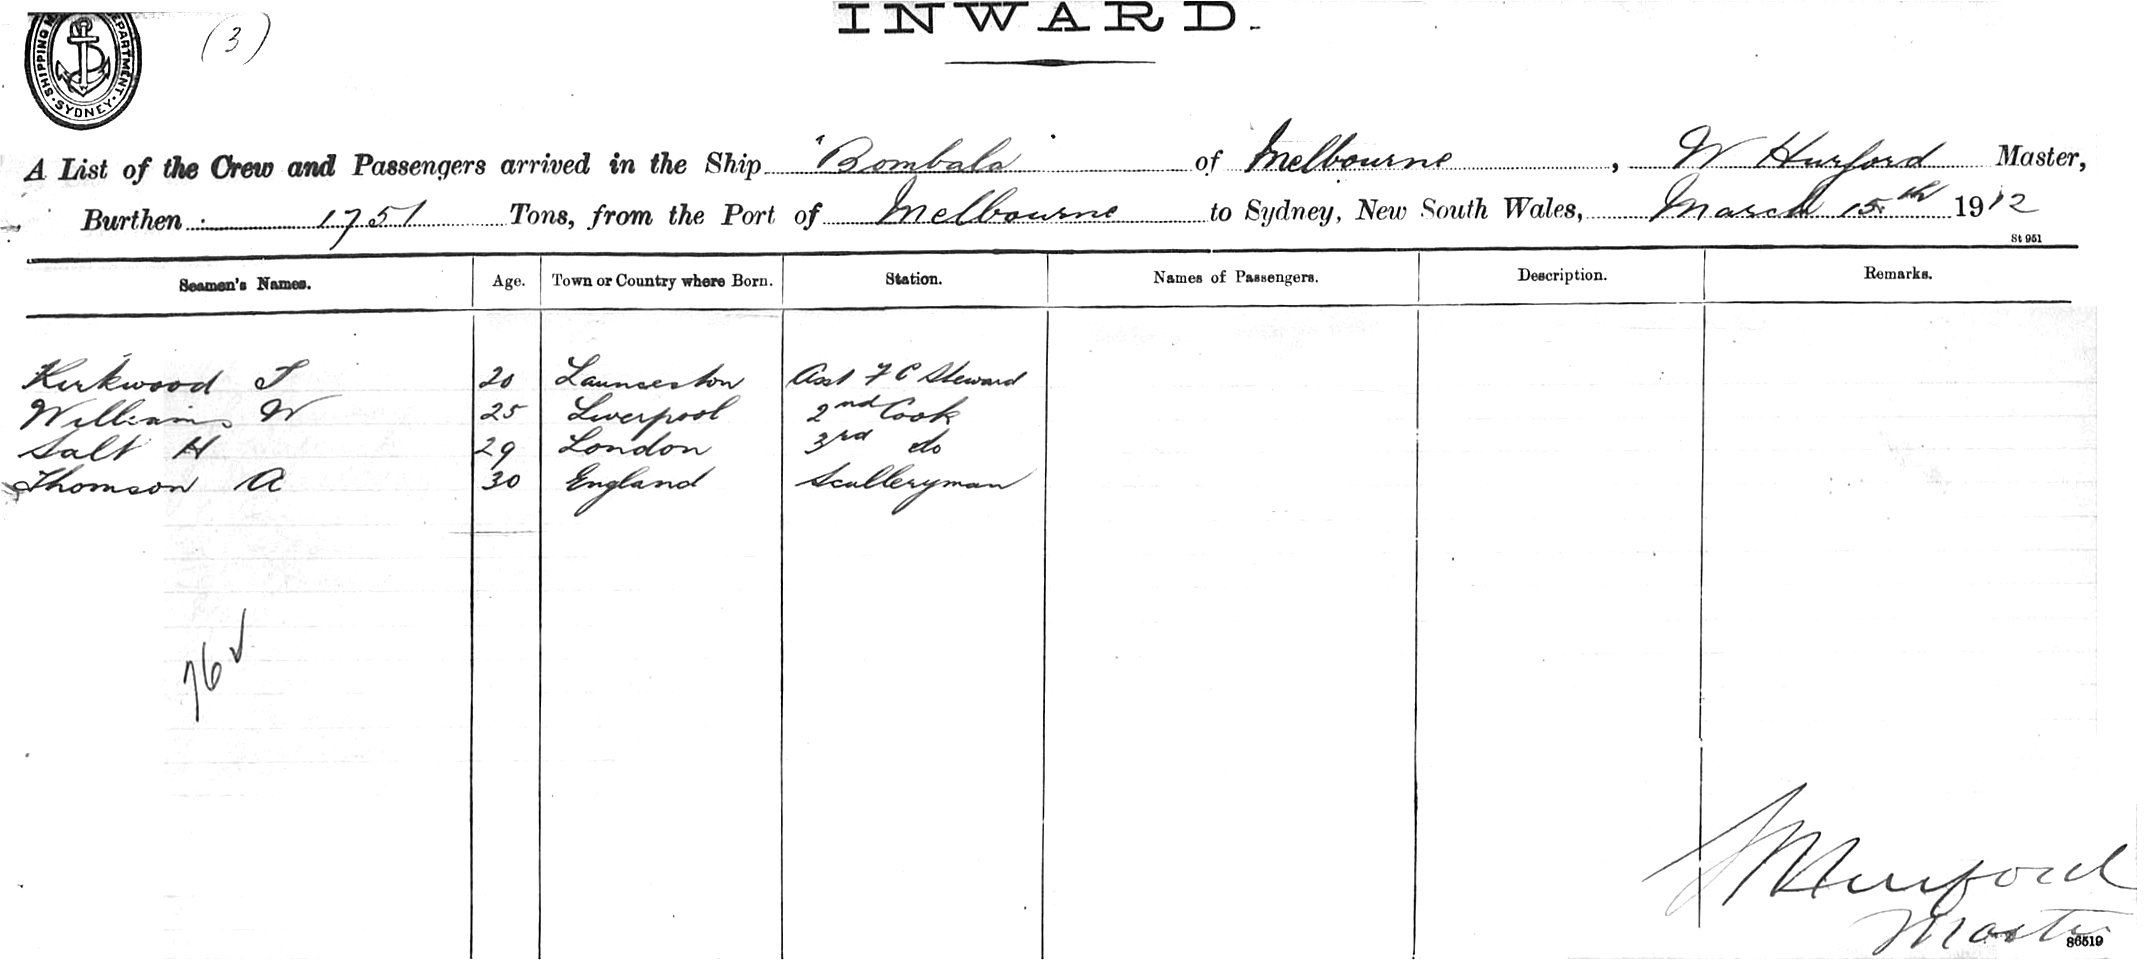 INWARD.
(3)
SHIPPING M EPARTMENT
SYDNEY
A List of the Crew and Passengers arrived in the Ship "Bombala" of Melbourne, W Hurford Master,
Burthen 1751 Tons, from the Port of Melbourne to Sydney, New South Wales, March 15th 1912
St 951
Seamen's Names. Age. Town or Country where Born. Station. Names of Passengers. Description. Remarks.
Kirkwood T 20 Launceston Asst F C Steward
Williams W 25 Liverpool 2nd Cook
Salt H 29 London 3rd do
Thomson A 30 England Sculleryman
76 ✓
Hurford
Master
86519